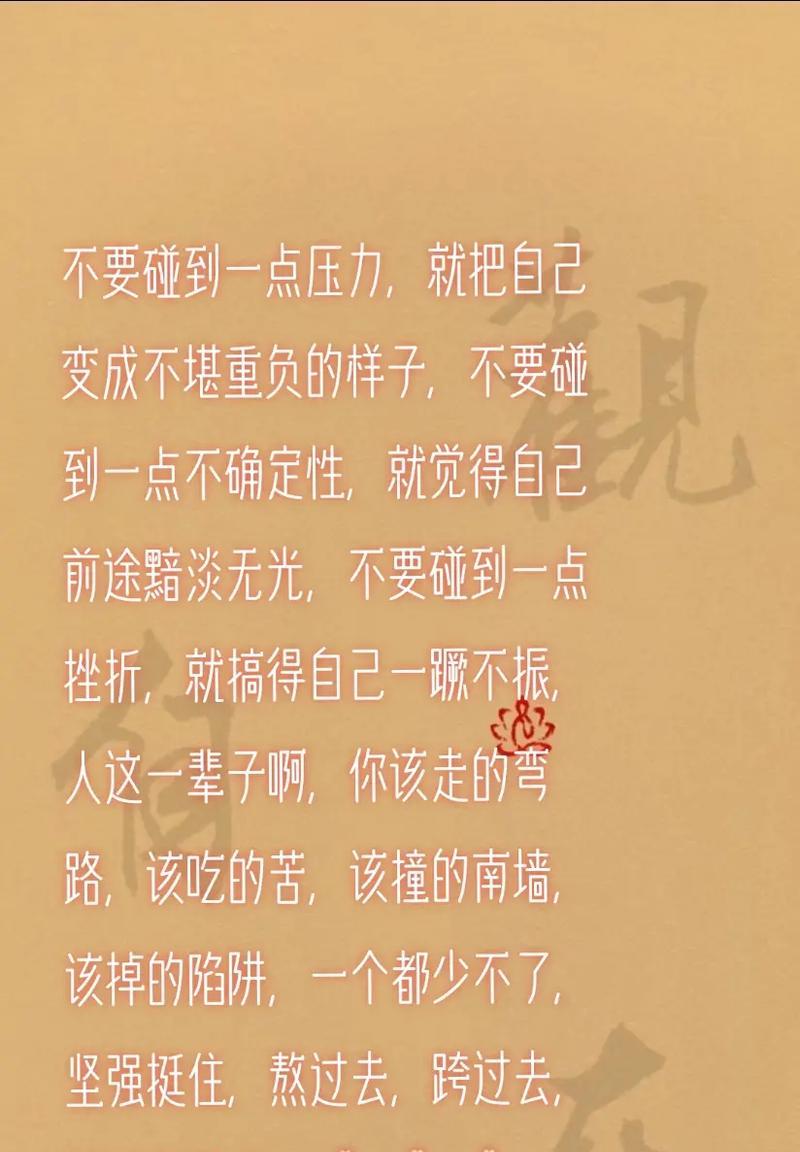 不要碰到一点压力，就把自己
变成不堪重负的样子，不要碰
到一点不确定性，就觉得自己
前途黯淡无光，不要碰到一点
挫折，就搞得自己一蹶不振，
人这一辈子啊，你该走的弯
路，该吃的苦，该撞的南墙，
该掉的陷阱，一个都少不了，
坚强挺住，熬过去，跨过去，
觀
自
在